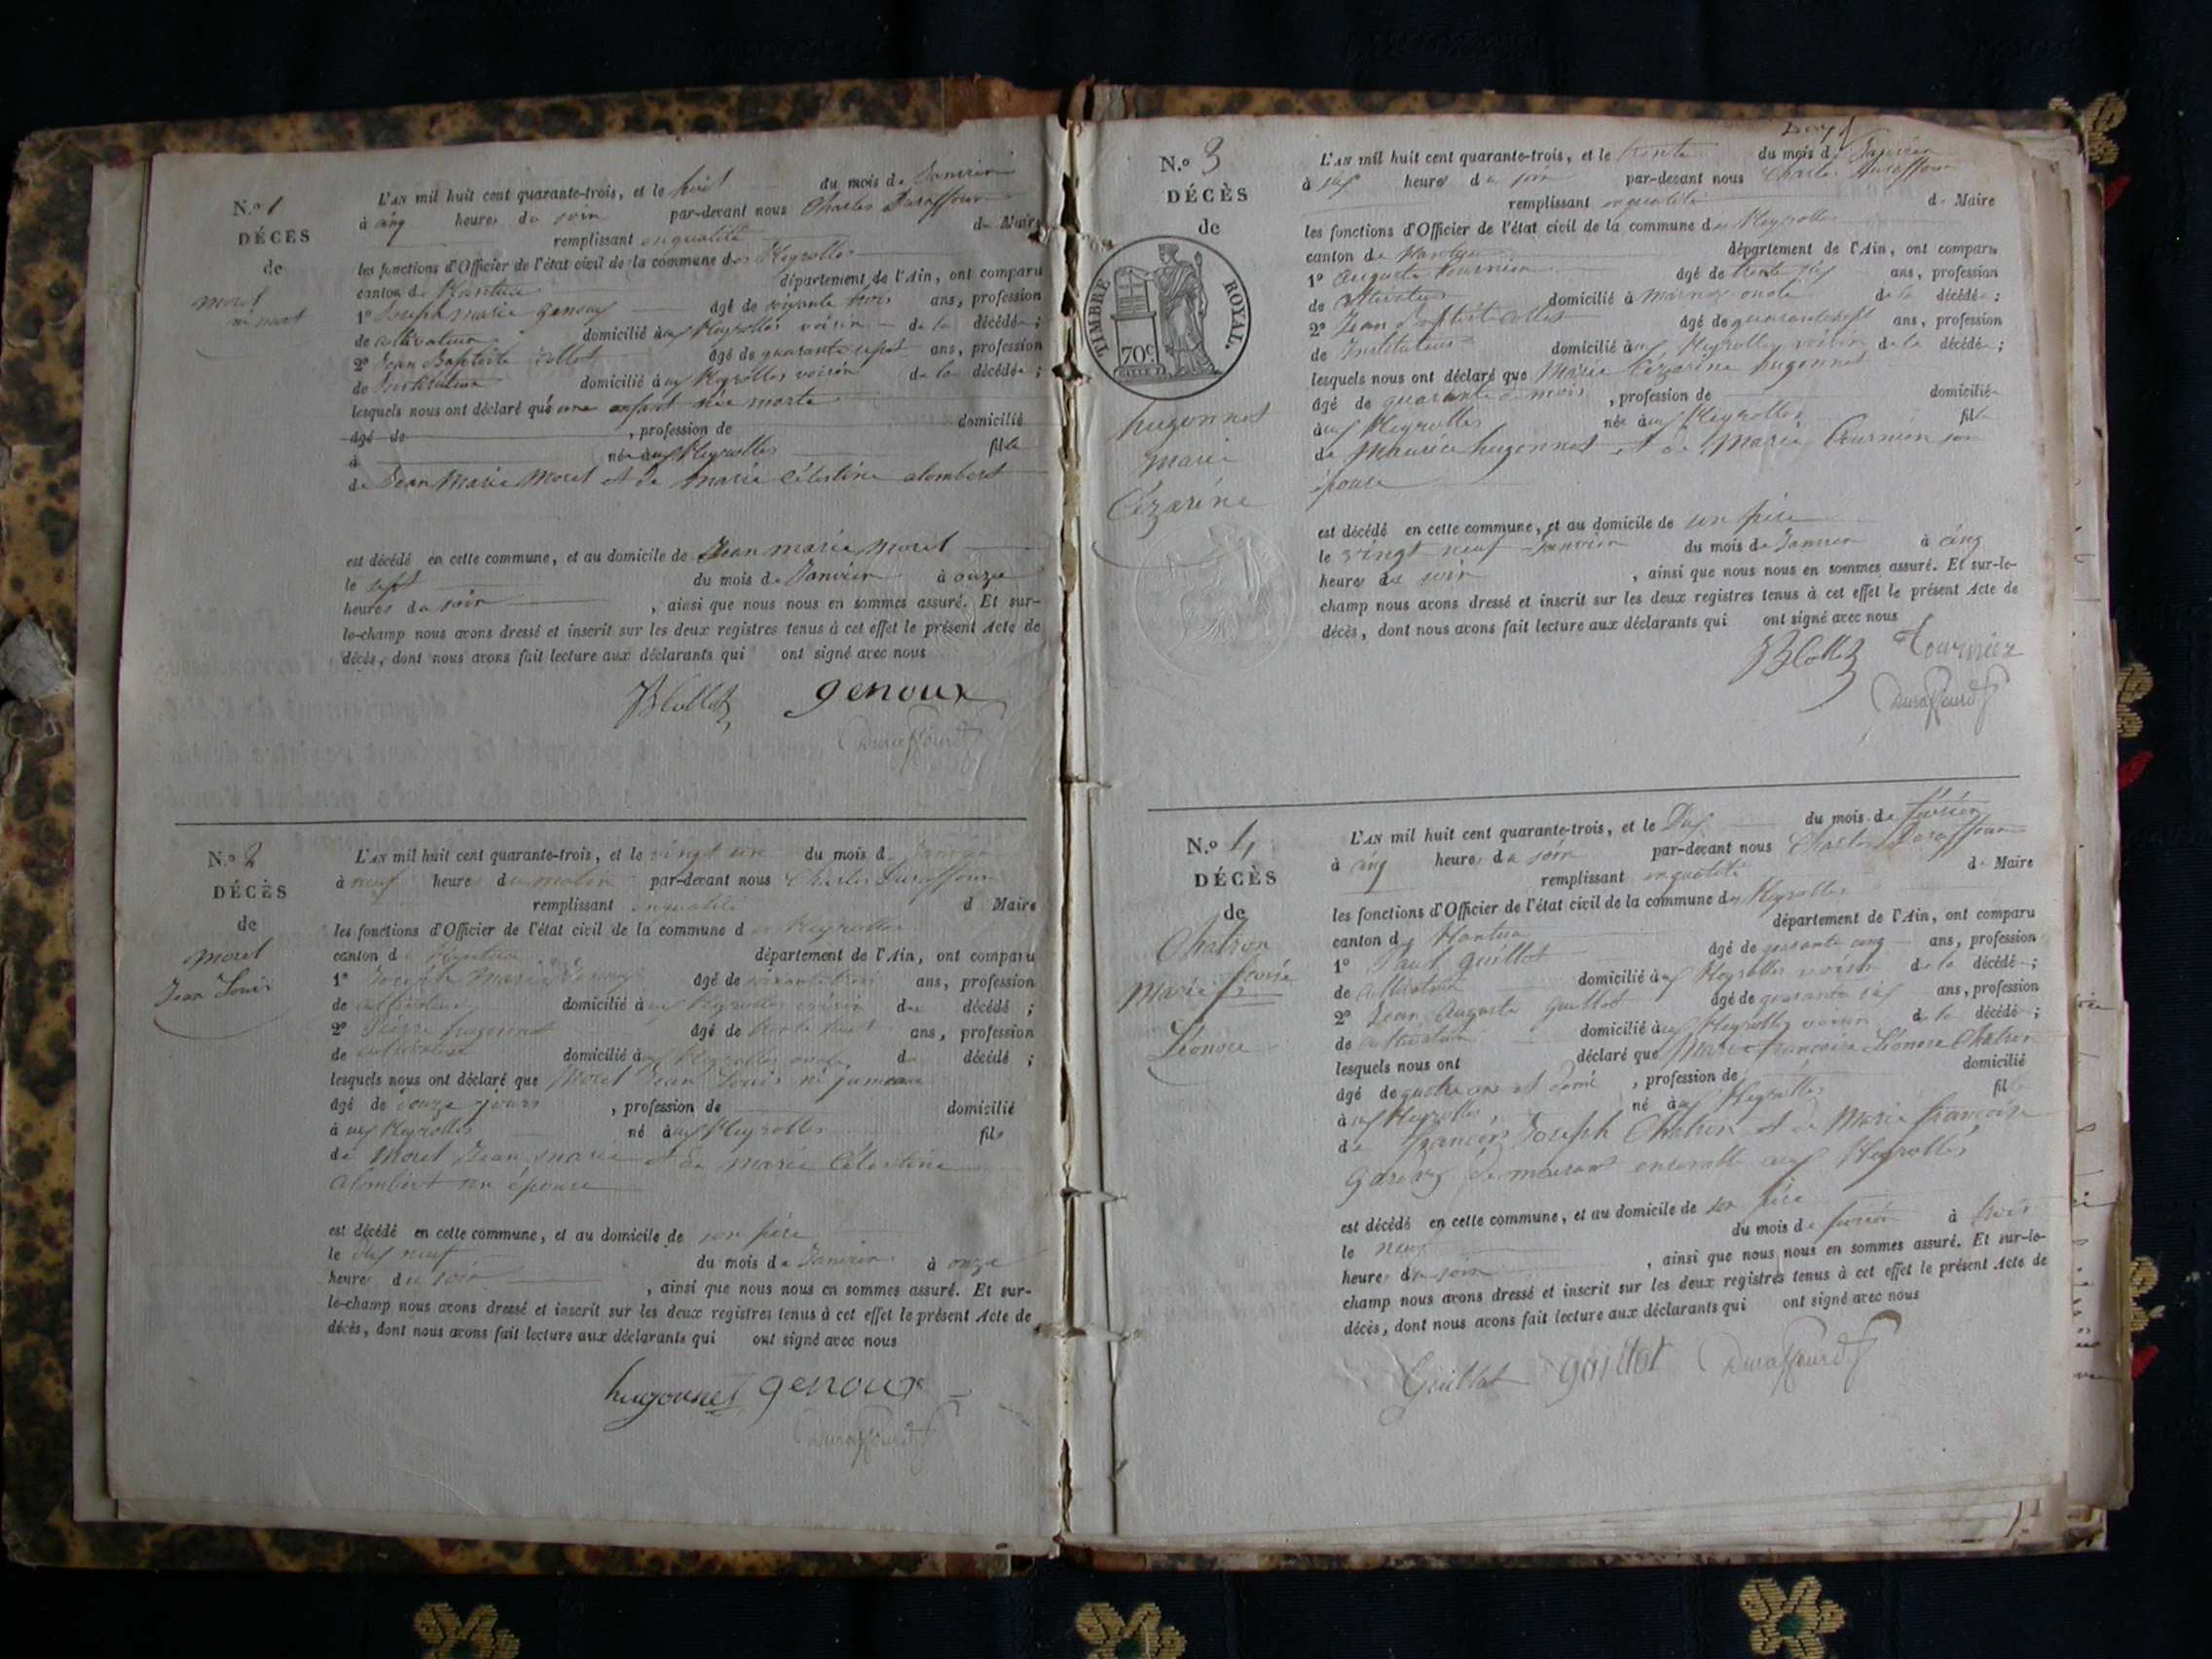 N.º 1
DÉCÈS
de
morel
né mort
L'AN mil huit cent quarante-trois, et le huit du mois de Janvier
à cinq heures du soir par-devant nous Charles Duraffour
remplissant en qualité de Maire
les fonctions d'Officier de l'état civil de la commune des Neyrolles
canton de Nantua département de l'Ain, ont comparu
1º Joseph marie genoux âgé de soixante trois ans, profession
de cultivateur domicilié aux Neyrolles voisin de la décédée;
2º Jean Baptiste Collet âgé de quarante sept ans, profession
de Instituteur domicilié aux Neyrolles voisin de la décédée;
lesquels nous ont déclaré qué une enfant née morte
âgé de , profession de domicilié
à née aux Neyrolles fille
de Jean Marie Morel et de marie Célestine alombert
est décédé en cette commune, et au domicile de Jean marie Morel
le sept du mois de Janvier à onze
heures du soir , ainsi que nous nous en sommes assuré. Et sur-
le-champ nous avons dressé et inscrit sur les deux registres tenus à cet effet le présent Acte de
décès, dont nous avons fait lecture aux déclarants qui ont signé avec nous
JBCollet genoux
Duraffourd
N.º 2
DÉCÈS
de
morel
Jean Louis
L'AN mil huit cent quarante-trois, et le vingt un du mois de Janvier
à neuf heures du matin par-devant nous Charles Duraffour
remplissant en qualité d Maire
les fonctions d'Officier de l'état civil de la commune des Neyrolles
canton de Nantua département de l'Ain, ont comparu
1º Joseph Marie Genoux âgé de soixante trois ans, profession
de cultivateur domicilié aux Neyrolles voisin du décédé;
2º Pierre hugonnet âgé de trente huit ans, profession
de cultivateur domicilié aux Neyrolles oncle du décédé;
lesquels nous ont déclaré que Morel Jean Louis né jumeau
âgé de douze jours , profession de domicilié
à aux Neyrolles né aux Neyrolles fils
de Morel Jean marie et de marie Célestine
alombert son épouse
est décédé en cette commune, et au domicile de son père
le dix neuf du mois de Janvier à onze
heures du soir , ainsi que nous nous en sommes assuré. Et sur-
le-champ nous avons dressé et inscrit sur les deux registres tenus à cet effet le présent Acte de
décès, dont nous avons fait lecture aux déclarants qui ont signé avec nous
hugonnet genoux
Duraffourd
N.º 3
DÉCÈS
de
TIMBRE ROYAL.
70c
hugonnet
Marie
Cézarine
L'AN mil huit cent quarante-trois, et le trente du mois de Janvier
à six heures du soir par-devant nous Charles Duraffour
remplissant en qualité de Maire
les fonctions d'Officier de l'état civil de la commune des Neyrolles
canton de Nantua département de l'Ain, ont comparu
1º Auguste tournier âgé de trente six ans, profession
de cultivateur domicilié à oncle de la décédée;
2º Jean Baptiste Collet âgé de quarante sept ans, profession
de Instituteur domicilié aux Neyrolles voisin de la décédée;
lesquels nous ont déclaré que Marie Cézarine hugonnet
âgé de quarante mois , profession de domiciliée
à aux Neyrolles née aux Neyrolles fille
de Maurice hugonnet et de Marie tournier son
épouse
est décédé en cette commune, et au domicile de son père
le vingt neuf Janvier du mois de Janvier à cinq
heures du soir , ainsi que nous nous en sommes assuré. Et sur-le-
champ nous avons dressé et inscrit sur les deux registres tenus à cet effet le présent Acte de
décès, dont nous avons fait lecture aux déclarants qui ont signé avec nous
JBCollet Tournier
Duraffourd
N.º 4
DÉCÈS
de
Chatron
Marie
Léonore
L'AN mil huit cent quarante-trois, et le Dix du mois de février
à cinq heures du soir par-devant nous Charles Duraffour
remplissant en qualité de Maire
les fonctions d'Officier de l'état civil de la commune des Neyrolles
canton de Nantua département de l'Ain, ont comparu
1º Paul Guillot âgé de cinq ans, profession
de cultivateur domicilié aux Neyrolles voisin de la décédée;
2º Jean Auguste Guillot âgé de quarante six ans, profession
de cultivateur domicilié aux Neyrolles voisin de la décédée;
lesquels nous ont déclaré que Marie françoise Léonore Chatron
âgé de quatre ans et demi , profession de domicilié
à aux Neyrolles, né aux Neyrolles fille
de françois Joseph Chatron et de Marie françoise
demeurant ensemble aux Neyrolles
est décédé en cette commune, et au domicile de son père
le neuf du mois de février à trois
heures du soir , ainsi que nous nous en sommes assuré. Et sur-le-
champ nous avons dressé et inscrit sur les deux registres tenus à cet effet le présent Acte de
décès, dont nous avons fait lecture aux déclarants qui ont signé avec nous
Guillot guillot Duraffourd